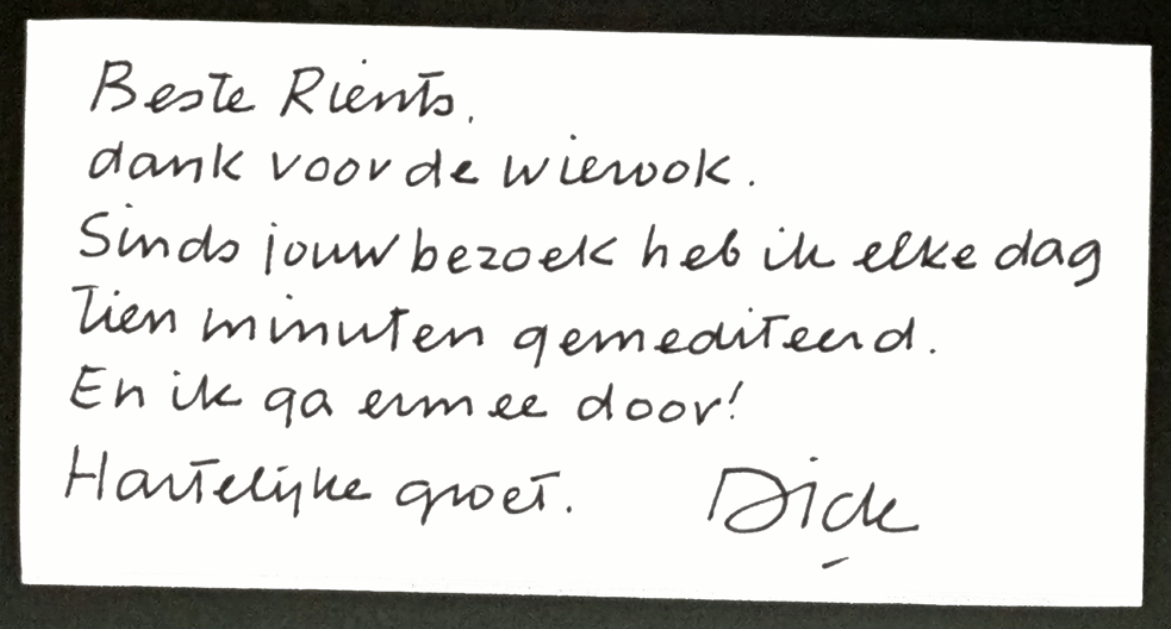 Beste Rients,
dank voor de wierook.
Sinds jouw bezoek heb ik elke dag
tien minuten gemediteerd.
En ik ga ermee door!
Hartelijke groet.
Dick